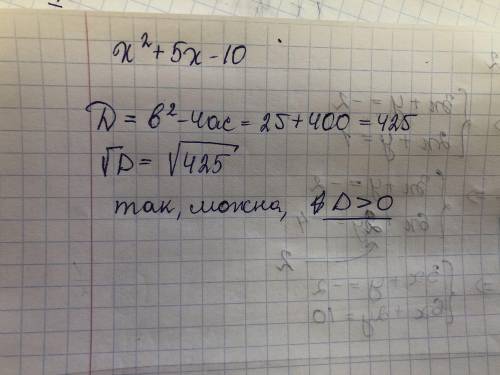 x² + 5x - 10
D = b² - 4ac = 25 + 400 = 425
√D = √425
так, можна, D > 0